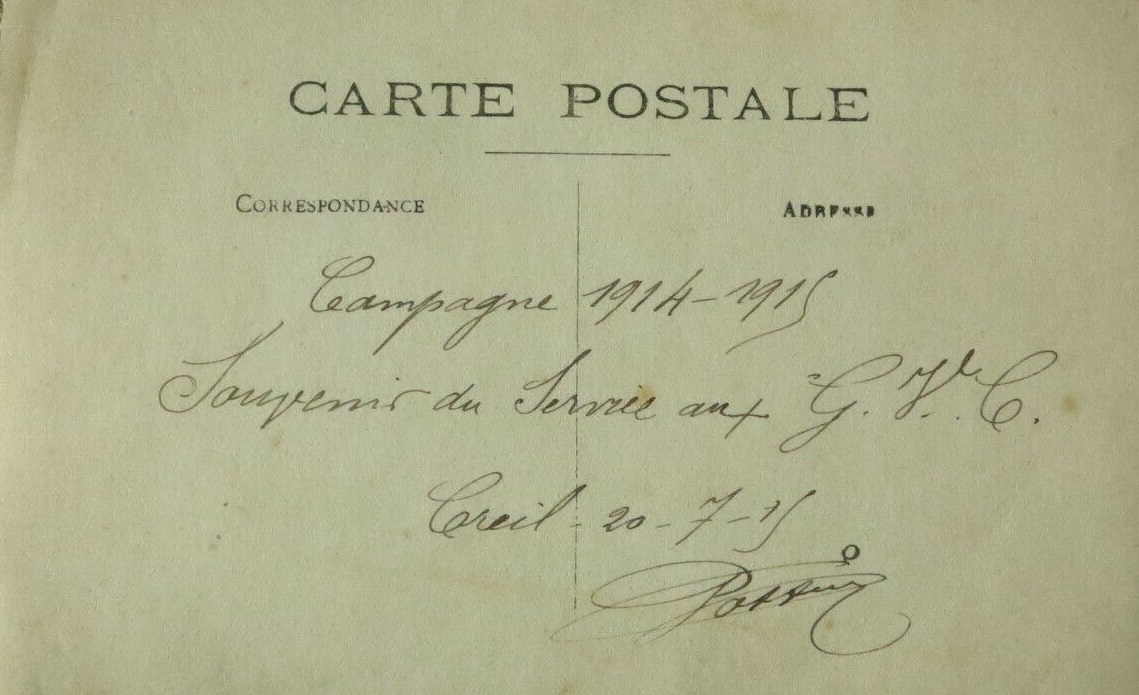 CARTE POSTALE
CORRESPONDANCE ADRESSE
Campagne 1914-1915
Souvenir du Service aux G. V. C.
Creil - 20-7-15